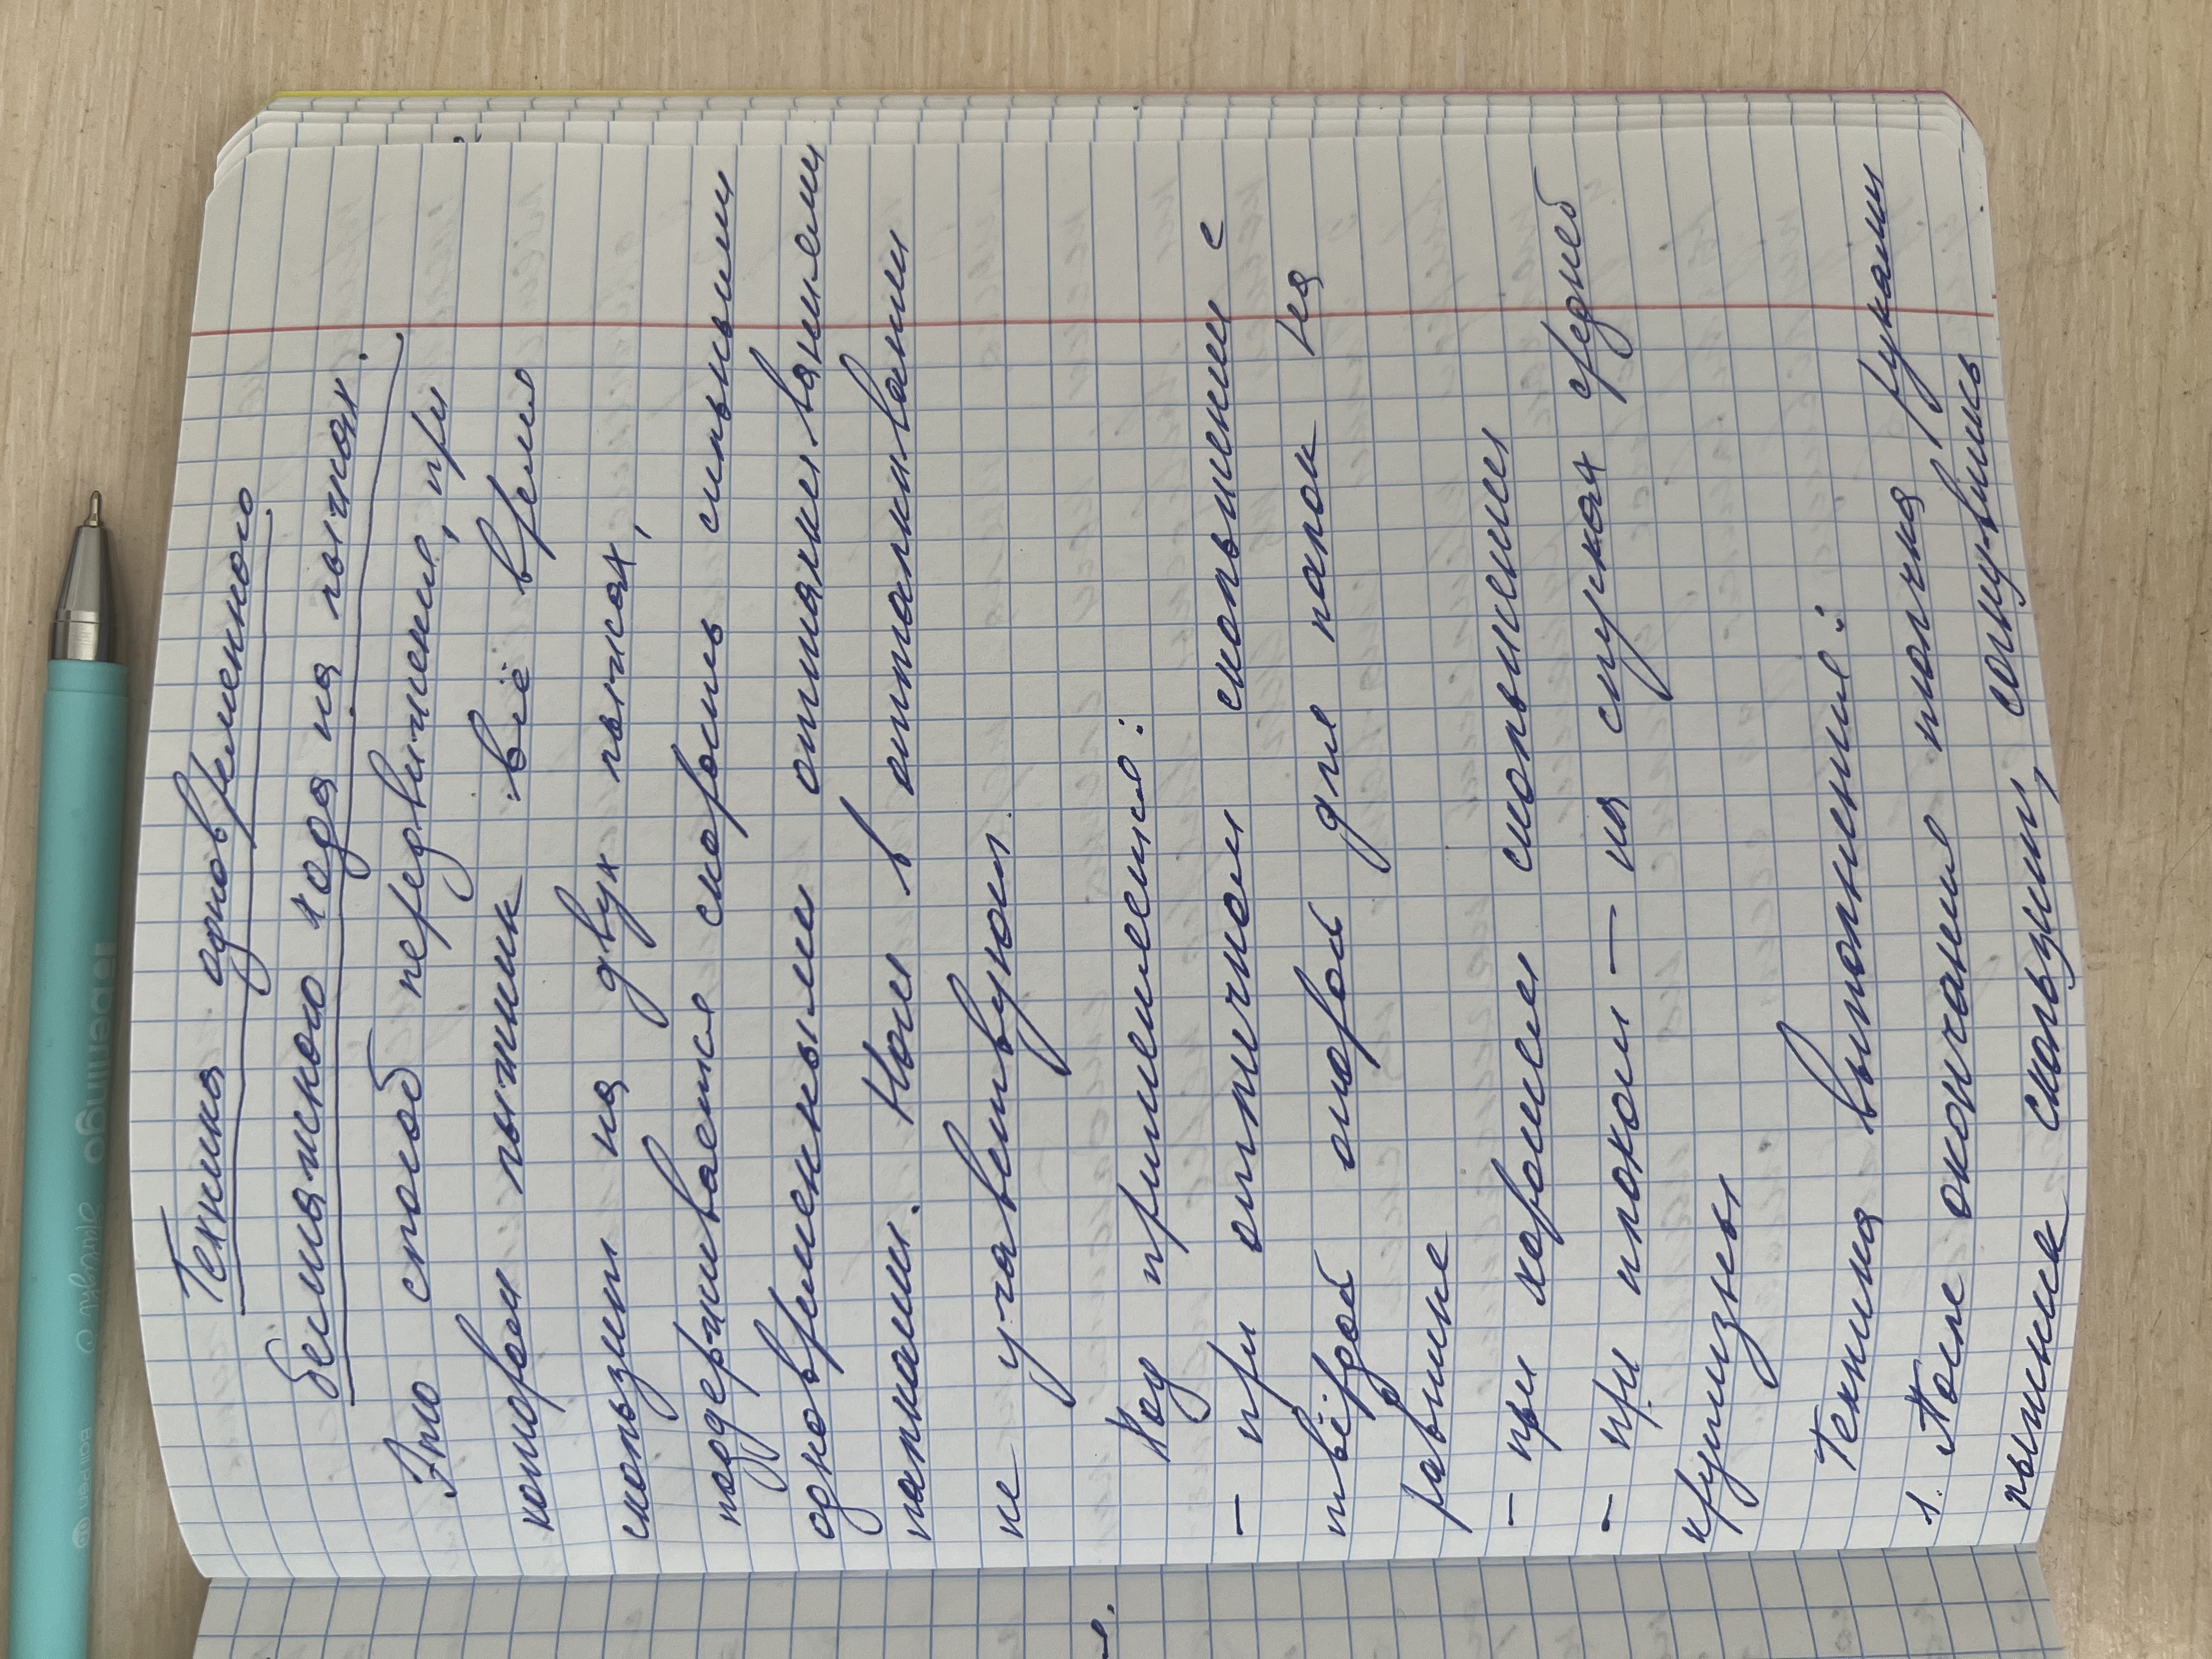 Техника одновременного
бесшажного хода на лыжах.
Это способ передвижения, при
котором лыжник всё время
скользит на двух лыжах,
поддерживается скорость сильными
одновременными отталкиваниями
палками. Ноги в отталкивании
не участвуют.
Ход применяется:
- при отличном скольжении с
твёрдой опорой для палок на
равнине
- при хорошем скольжении
- при плохом — на спусках средней
крутизны
Техника выполнения:
1. После окончания толчка руками
лыжник скользит, согнувшись
berlingo